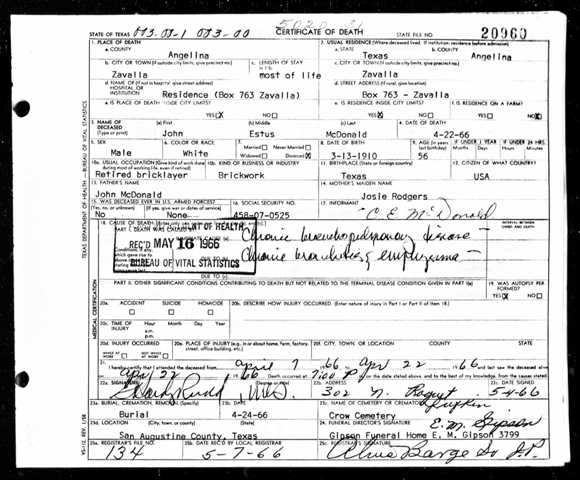 STATE OF TEXAS
CERTIFICATE OF DEATH
STATE FILE NO. 20960
1. PLACE OF DEATH
a. COUNTY
Angelina
2. USUAL RESIDENCE (Where deceased lived. If institution: residence before admission)
a. STATE
Texas
b. COUNTY
Angelina
b. CITY OR TOWN (If outside city limits, give precinct no.)
Zavalla
c. LENGTH OF STAY
most of life
c. CITY OR TOWN (If outside city limits, give precinct no.)
Zavalla
d. NAME OF (If not in hospital, give street address)
HOSPITAL OR
INSTITUTION
Residence (Box 763 Zavalla)
d. STREET ADDRESS (If rural, give location)
Box 763 - Zavalla
e. IS PLACE OF DEATH INSIDE CITY LIMITS?
YES NO
e. IS RESIDENCE INSIDE CITY LIMITS?
YES NO
f. IS RESIDENCE ON A FARM?
YES NO
3. NAME OF
DECEASED
(Type or print)
(a) First
John
(b) Middle
Estus
(c) Last
McDonald
4. DATE OF DEATH
4-22-66
5. SEX
Male
6. COLOR OR RACE
White
7. Married Never Married
Widowed Divorced
8. DATE OF BIRTH
3-13-1910
9. AGE (In years
56
IF UNDER 1 YEAR
Months Days
IF UNDER 24 HRS.
Hours Minutes
10a. USUAL OCCUPATION
Retired bricklayer
10b. KIND OF BUSINESS OR INDUSTRY
Brickwork
11. BIRTHPLACE (State or foreign country)
Texas
12. CITIZEN OF WHAT COUNTRY?
USA
13. FATHER'S NAME
John McDonald
14. MOTHER'S MAIDEN NAME
Josie Rodgers
15. WAS DECEASED EVER IN U.S. ARMED FORCES?
No None
16. SOCIAL SECURITY NO.
458-07-0525
17. INFORMANT
C. E. McDonald
18. CAUSE OF DEATH
INTERVAL BETWEEN
ONSET AND DEATH
Chronic bronchopulmonary disease
REC'D MAY 16 1966
BUREAU OF VITAL STATISTICS
DUE TO (c)
PART II. OTHER SIGNIFICANT CONDITIONS CONTRIBUTING TO DEATH BUT NOT RELATED TO THE TERMINAL DISEASE CONDITION GIVEN IN PART I(a)
19. WAS AUTOPSY PERFORMED?
YES NO
20a. ACCIDENT SUICIDE HOMICIDE
20b. DESCRIBE HOW INJURY OCCURRED. (Enter nature of injury in Part I or Part II of item 18.)
20c. TIME OF
INJURY
Hour Month Day Year
a.m.
p.m.
20d. INJURY OCCURRED
20e. PLACE OF INJURY (e.g. in or about home, farm, factory, street, office building, etc.)
20f. CITY, TOWN, OR LOCATION
COUNTY
STATE
21. I hereby certify that I attended the deceased from April 7 66 to Apr 22 66
Apr 22 66 Death occurred at 7:00 P m. on the date stated above, and to the best of my knowledge, from the causes stated.
22a. SIGNATURE
(Degree or title)
22b. ADDRESS
302 N.
Lufkin
22c. DATE SIGNED
5-4-66
23a. BURIAL, CREMATION, REMOVAL (Specify)
Burial
23b. DATE
4-24-66
23c. NAME OF CEMETERY OR CREMATORY
Crow Cemetery
23d. LOCATION
San Augustine County, Texas
24. FUNERAL DIRECTOR'S SIGNATURE
E. M. Gipson
Gipson Funeral Home E. M. Gipson 3799
25a. REGISTRAR'S FILE NO.
134
25b. DATE REC'D BY LOCAL REGISTRAR
5-7-66
25c. REGISTRAR'S SIGNATURE
MEDICAL CERTIFICATION